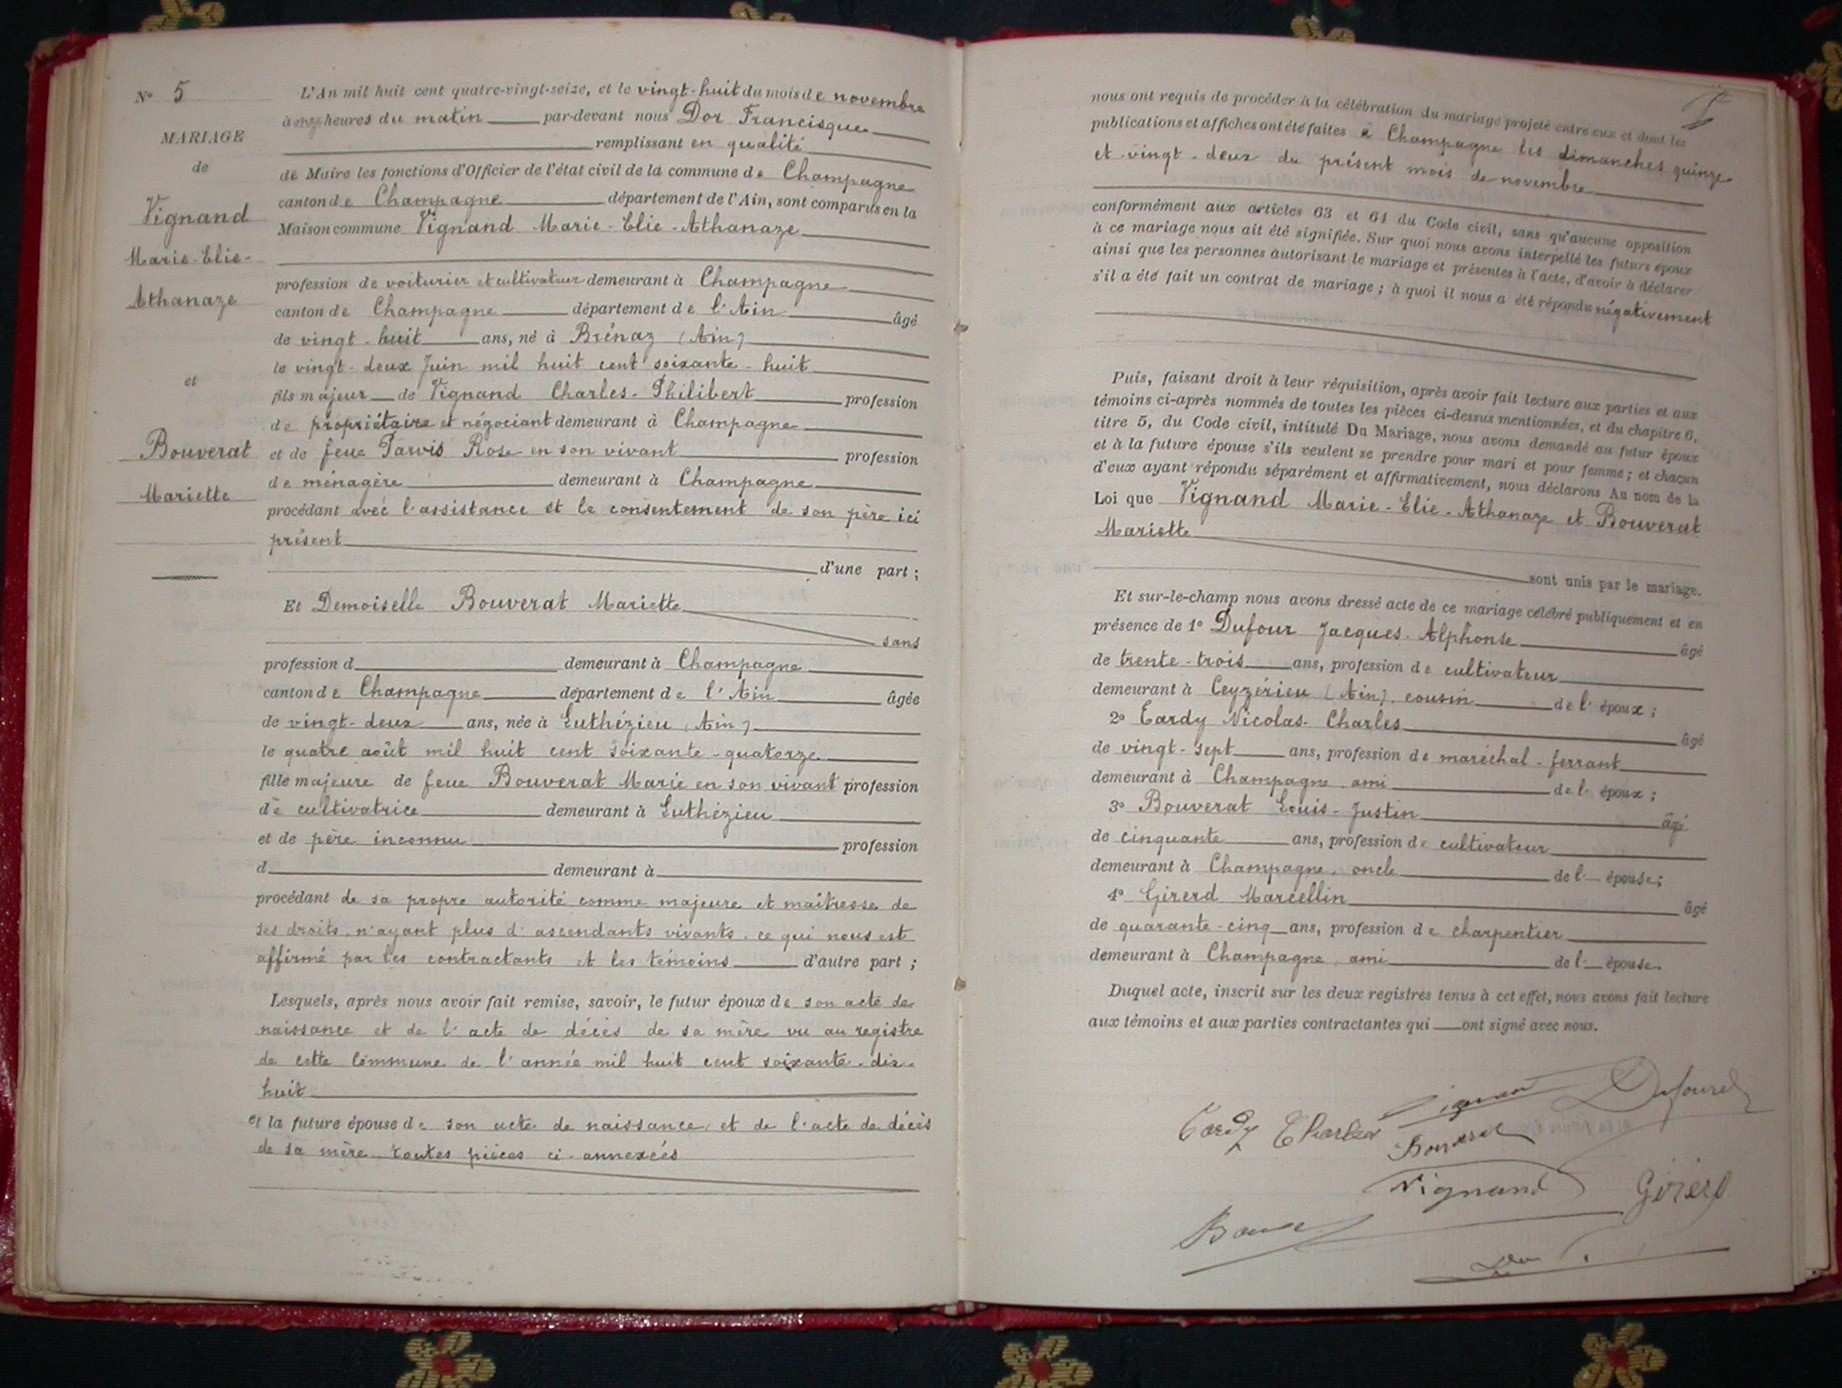 N° 5
MARIAGE
de
Vignand
Marie-Elie-
Athanaze
et
Bouverat
Mariette
L'An mil huit cent quatre-vingt-seize, et le vingt-huit du mois de novembre
à onze heures du matin par-devant nous Dor Francisque
remplissant en qualité
de Maire les fonctions d'Officier de l'état civil de la commune de Champagne
canton de Champagne département de l'Ain, sont comparus en la
Maison commune Vignand Marie-Elie-Athanaze
profession de voiturier et cultivateur demeurant à Champagne
canton de Champagne département de l'Ain âgé
de vingt-huit ans, né à Brénaz (Ain)
le vingt-deux Juin mil huit cent soixante-huit
fils majeur de Vignand Charles-Philibert profession
de propriétaire et négociant demeurant à Champagne
et de feue Parvis Rose en son vivant profession
de ménagère demeurant à Champagne
procédant avec l'assistance et le consentement de son père ici
présent
d'une part ;
Et Demoiselle Bouverat Mariette
sans
profession d demeurant à Champagne
canton de Champagne département de l'Ain âgée
de vingt-deux ans, née à Luthézieu (Ain)
le quatre août mil huit cent soixante-quatorze
fille majeure de feue Bouverat Marie en son vivant profession
de cultivatrice demeurant à Luthézieu
et de père inconnu profession
d demeurant à
procédant de sa propre autorité comme majeure et maîtresse de
ses droits, n'ayant plus d'ascendants vivants, ce qui nous est
affirmé par les contractants et les témoins d'autre part ;
Lesquels, après nous avoir fait remise, savoir, le futur époux de son acte de
naissance et de l'acte de décès de sa mère vu au registre
de cette Commune de l'année mil huit cent soixante-dix-
huit
et la future épouse de son acte de naissance, et de l'acte de décès
de sa mère toutes pièces ci-annexées
nous ont requis de procéder à la célébration du mariage projeté entre eux et dont les
publications et affiches ont été faites à Champagne les dimanches quinze
et vingt-deux du présent mois de novembre
conformément aux articles 63 et 64 du Code civil, sans qu'aucune opposition
à ce mariage nous ait été signifiée. Sur quoi nous avons interpellé les futurs époux
ainsi que les personnes autorisant le mariage et présentes à l'acte, d'avoir à déclarer
s'il a été fait un contrat de mariage ; à quoi il nous a été répondu négativement
Puis, faisant droit à leur réquisition, après avoir fait lecture aux parties et aux
témoins ci-après nommés de toutes les pièces ci-dessus mentionnées, et du chapitre 6,
titre 5, du Code civil, intitulé Du Mariage, nous avons demandé au futur époux
et à la future épouse s'ils veulent se prendre pour mari et pour femme ; et chacun
d'eux ayant répondu séparément et affirmativement, nous déclarons Au nom de la
Loi que Vignand Marie-Elie-Athanaze et Bouverat
Mariette
sont unis par le mariage.
Et sur-le-champ nous avons dressé acte de ce mariage célébré publiquement et en
présence de 1° Dufour Jacques-Alphonse âgé
de trente-trois ans, profession de cultivateur
demeurant à Ceyzérieu (Ain), cousin de l'époux ;
2° Tardy Nicolas-Charles âgé
de vingt-sept ans, profession de maréchal-ferrant
demeurant à Champagne, ami de l'époux ;
3° Bouverat Louis-Justin âgé
de cinquante ans, profession de cultivateur
demeurant à Champagne, oncle de l'épouse ;
4° Girerd Marcellin âgé
de quarante-cinq ans, profession de charpentier
demeurant à Champagne, ami de l'épouse.
Duquel acte, inscrit sur les deux registres tenus à cet effet, nous avons fait lecture
aux témoins et aux parties contractantes qui ont signé avec nous.
Vignand Dufour
Tardy Charles
Bouverat
Vignand Girerd